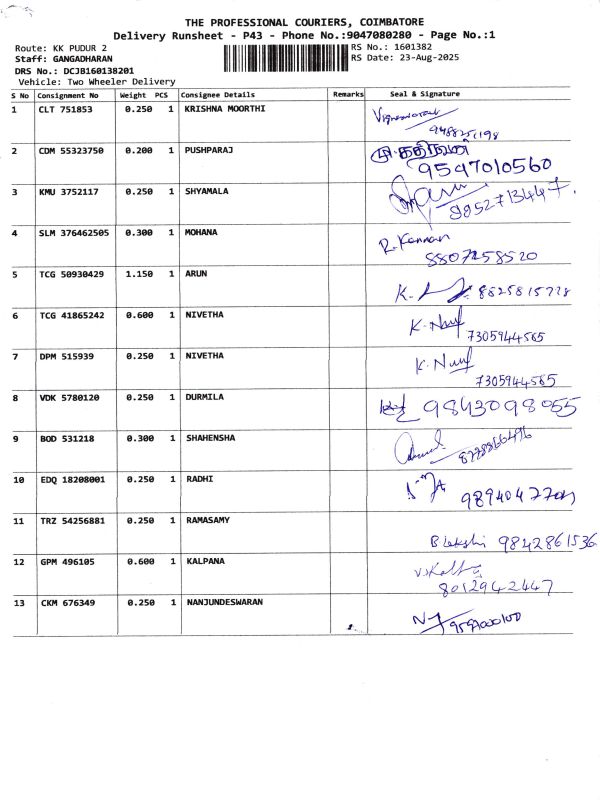 THE PROFESSIONAL COURIERS, COIMBATORE
Delivery Runsheet - P43 - Phone No.:9047080280 - Page No.:1
Route: KK PUDUR 2 RS No.: 1601382
Staff: GANGADHARAN RS Date: 23-Aug-2025
DRS No.: DCJB160138201
Vehicle: Two Wheeler Delivery
S No Consignment No Weight PCS Consignee Details Remarks Seal & Signature
1 CLT 751853 0.250 1 KRISHNA MOORTHI
2 CDM 55323750 0.200 1 PUSHPARAJ
9547010560
3 KMU 3752117 0.250 1 SHYAMALA
9952713447
4 SLM 376462505 0.300 1 MOHANA R. Kannan
8807258520
5 TCG 50930429 1.150 1 ARUN
6 TCG 41865242 0.600 1 NIVETHA
7305944565
7 DPM 515939 0.250 1 NIVETHA
7305944565
8 VDK 5780120 0.250 1 DURMILA 9843098055
9 BOD 531218 0.300 1 SHAHENSHA
10 EDQ 18208001 0.250 1 RADHI
11 TRZ 54256881 0.250 1 RAMASAMY
9842861536
12 GPM 496105 0.600 1 KALPANA
8012942447
13 CKM 676349 0.250 1 NANJUNDESWARAN